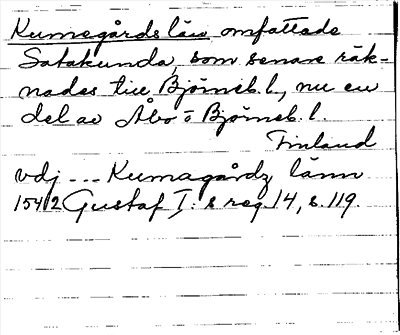 Kumogårds län omfattade
Satakunda, som senare räk-
nades till Björneb. l., nu en
del av Åbo o Björneb. l.
Finland
vdj --- Kumagårdz länn
1542 Gustaf I:s reg. 14, s. 119.